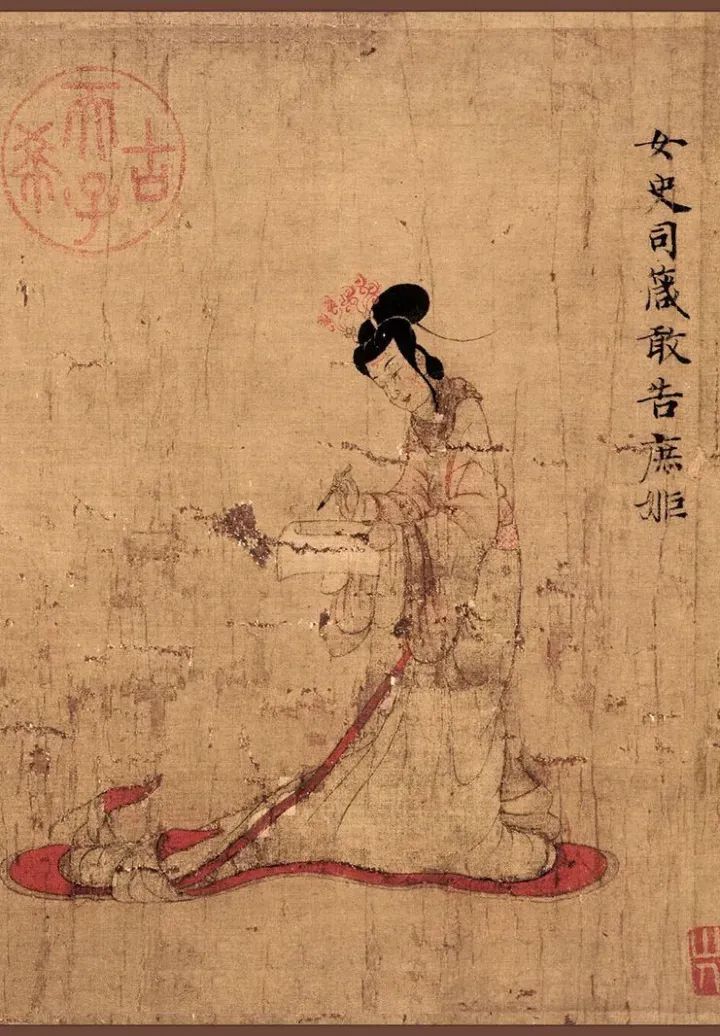 女史司箴敢告庶姬
古希天子